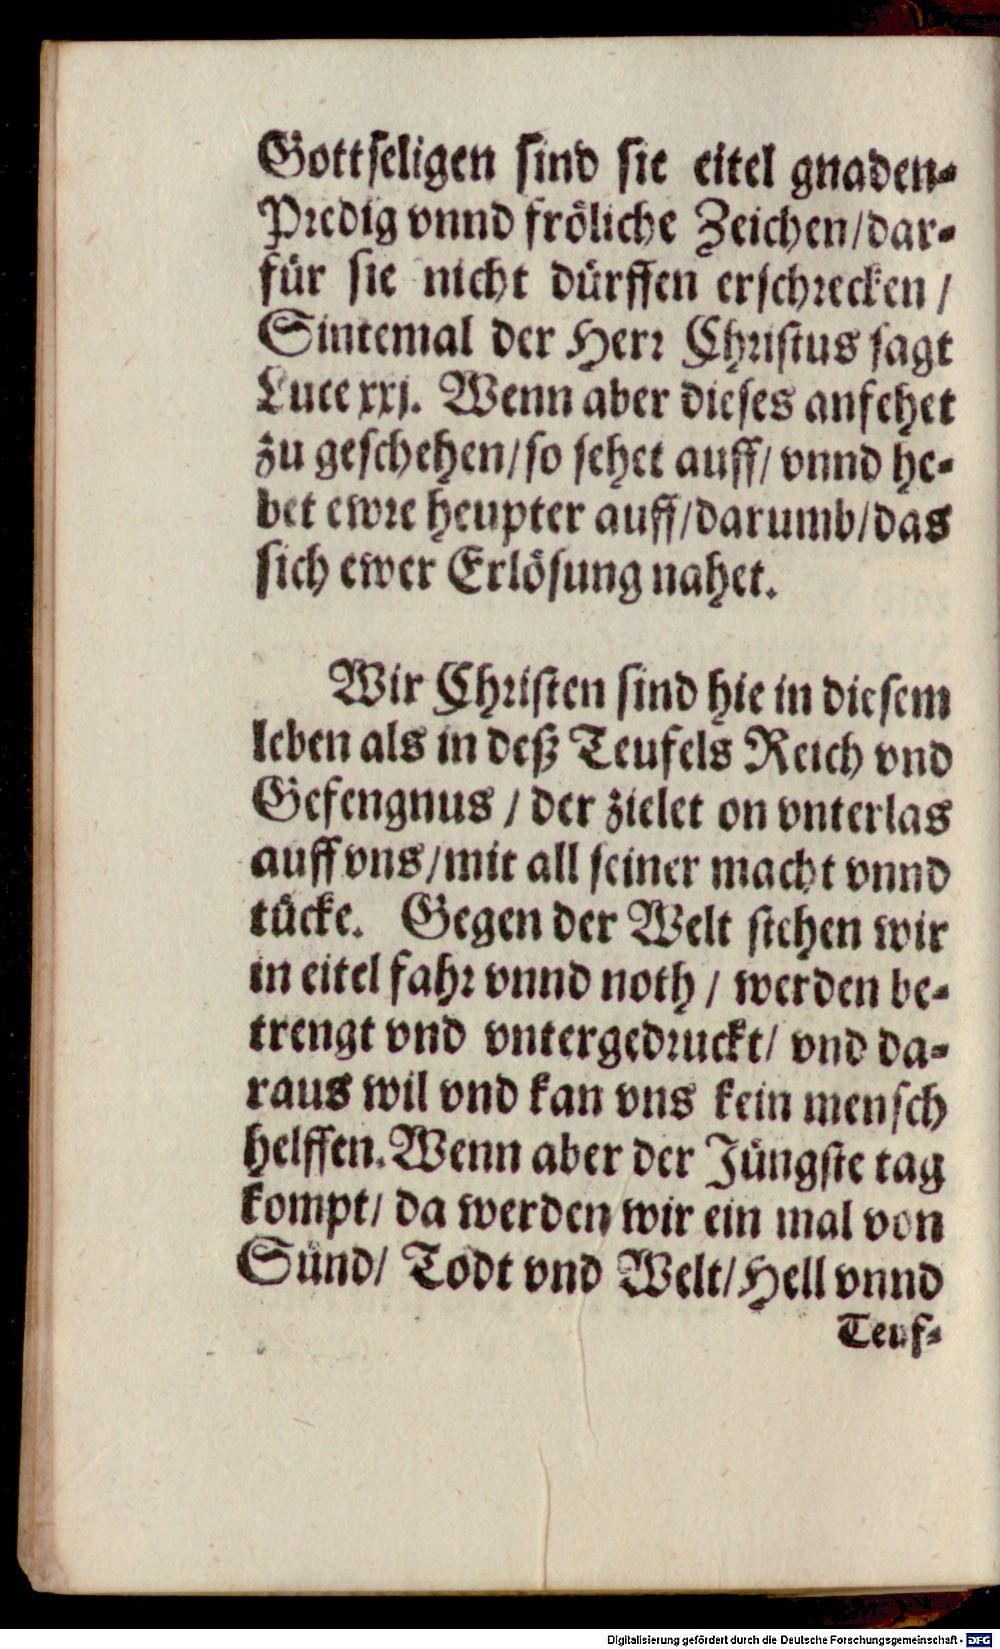 Gottſeligen ſind ſie eitel gnaden-
Predig vnnd fröliche Zeichen/dar-
für ſie nicht dürffen erſchrecken /
Sintemal der Herr Chriſtus ſagt
Luce xxj. Wenn aber dieſes anfehet
zu geſchehen/ſo ſehet auff/ vnnd he-
bet ewre heupter auff/darumb/das
ſich ewer Erlöſung nahet.
Wir Chriſten ſind hie in dieſem
leben als in deß Teufels Reich vnd
Gefengnus / der zielet on vnterlas
auff vns/mit all ſeiner macht vnnd
tücke. Gegen der Welt ſtehen wir
in eitel fahr vnnd noth / werden be-
trengt vnd vntergedruckt/ vnd da-
raus wil vnd kan vns kein menſch
helffen. Wenn aber der Jüngſte tag
kompt/ da werden wir ein mal von
Sünd/ Todt vnd Welt/Hell vnnd
Teuf-
Digitalisierung gefördert durch die Deutsche Forschungsgemeinschaft - DFG